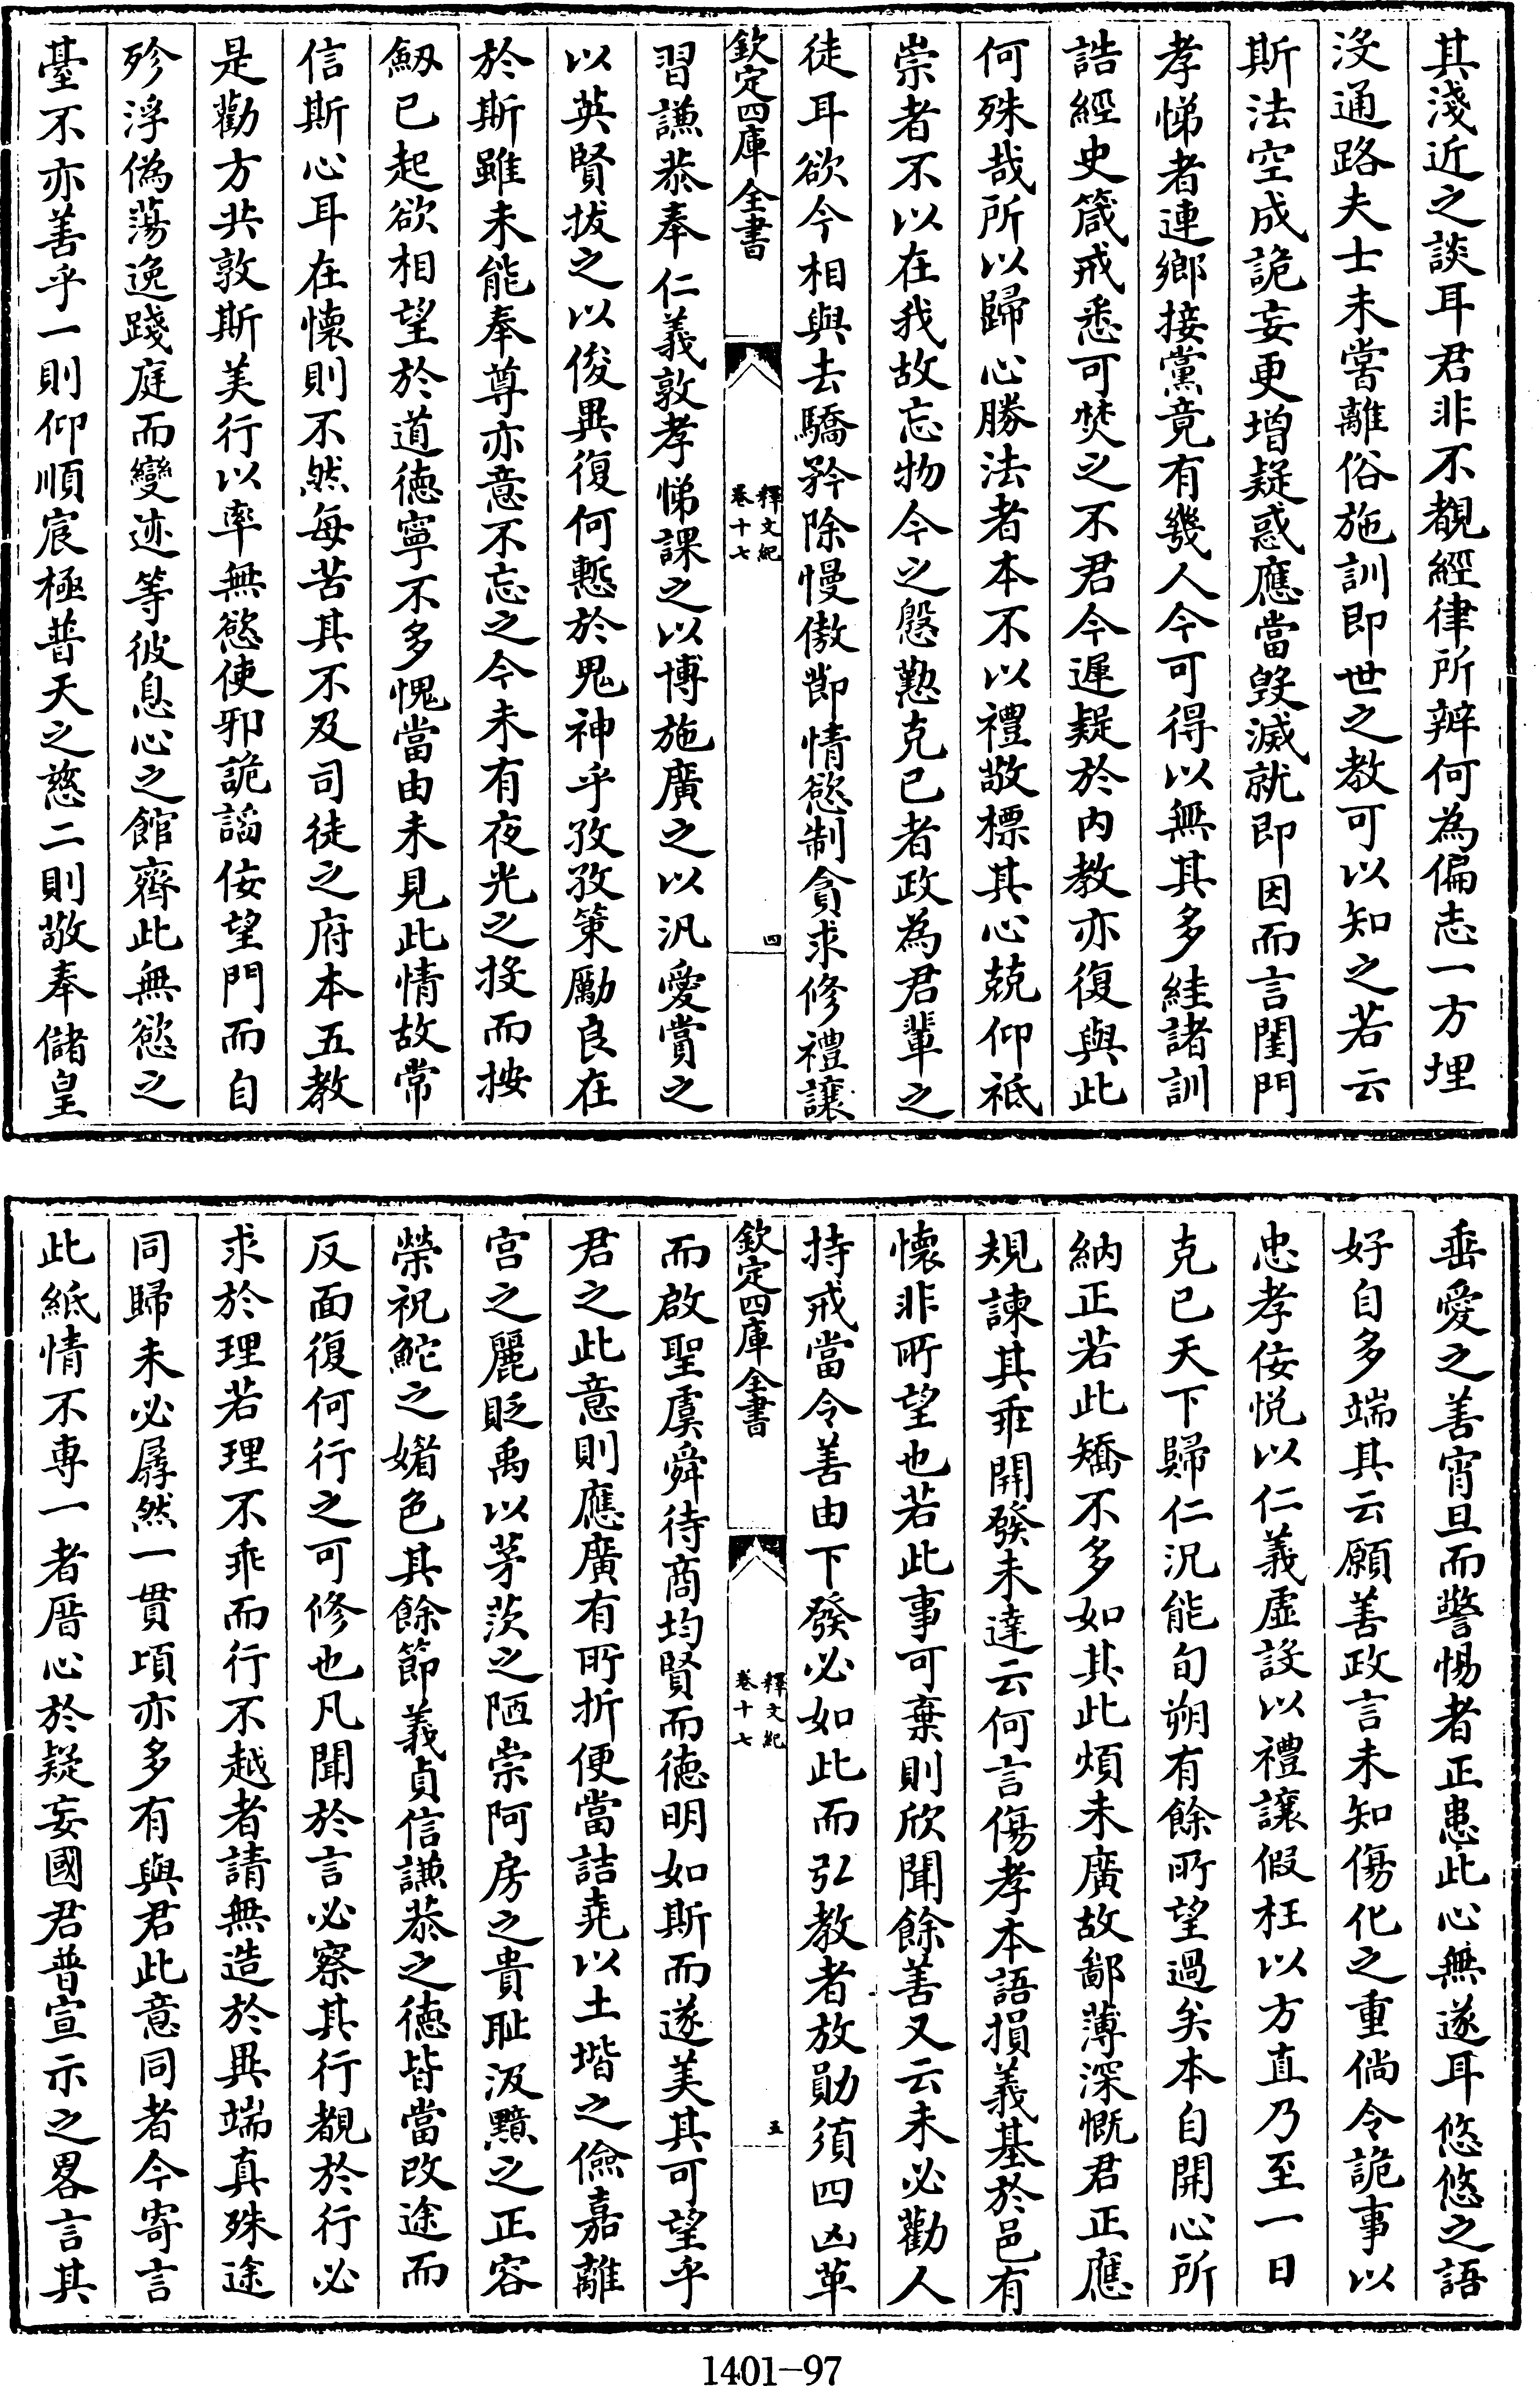 其淺近之談耳君非不覩經律所辨何為偏志一方埋
沒通路夫士未嘗離俗施訓即世之教可以知之若云
斯法空成詭妄更增疑惑應當毁滅就即因而言閨門
孝悌者連鄉接黨竟有幾人今可得以無其多絓諸訓
誥經史箴戒悉可焚之不君今遲疑於内教亦復與此
何殊哉所以歸心勝法者本不以禮敬標其心兢仰祗
崇者不以在我故忘物今之慇懃克已者政為君輩之
徒耳欲令相與去驕矜除慢傲節情慾制貪求修禮讓
欽定四庫全書
釋文紀
卷十七
四
習謙恭奉仁義敦孝悌課之以博施廣之以汎愛賞之
以英賢拔之以俊異復何慙於鬼神乎孜孜策勵良在
於斯雖未能奉尊亦意不忘之今未有夜光之投而按
劔已起欲相望於道德寧不多愧當由未見此情故常
信斯心耳在懷則不然每苦其不及司徒之府本五教
是勸方共敦斯美行以率無慾使邪詭諂佞望門而自
殄浮偽蕩逸踐庭而變迹等彼息心之館齊此無慾之
臺不亦善乎一則仰順宸極普天之慈二則敬奉儲皇
垂愛之善宵旦而警惕者正患此心無遂耳悠悠之語
好自多端其云願善政言未知傷化之重倘令詭事以
忠孝佞悅以仁義虚設以禮讓假枉以方直乃至一日
克已天下歸仁況能旬朔有餘所望過矣本自開心所
納正若此矯不多如其此煩未廣故鄙薄深慨君正應
規諫其乖開發未達云何言傷孝本語損義基於邑有
懷非所望也若此事可棄則欣聞餘善又云未必勸人
持戒當令善由下發必如此而弘教者放勛須四凶革
欽定四庫全書
釋文紀
卷十七
五
而啟聖虞舜待商均賢而德明如斯而遂美其可望乎
君之此意則應廣有所折便當詰堯以土堦之儉嘉離
宫之麗貶禹以茅茨之陋崇阿房之貴耻汲黯之正容
榮祝鮀之媚色其餘節義貞信謙恭之德皆當改途而
反面復何行之可修也凡聞於言必察其行覩於行必
求於理若理不乖而行不越者請無造於異端真殊途
同歸未必孱然一貫頃亦多有與君此意同者今寄言
此紙情不專一者厝心於疑妄國君普宣示之畧言其
1401-97